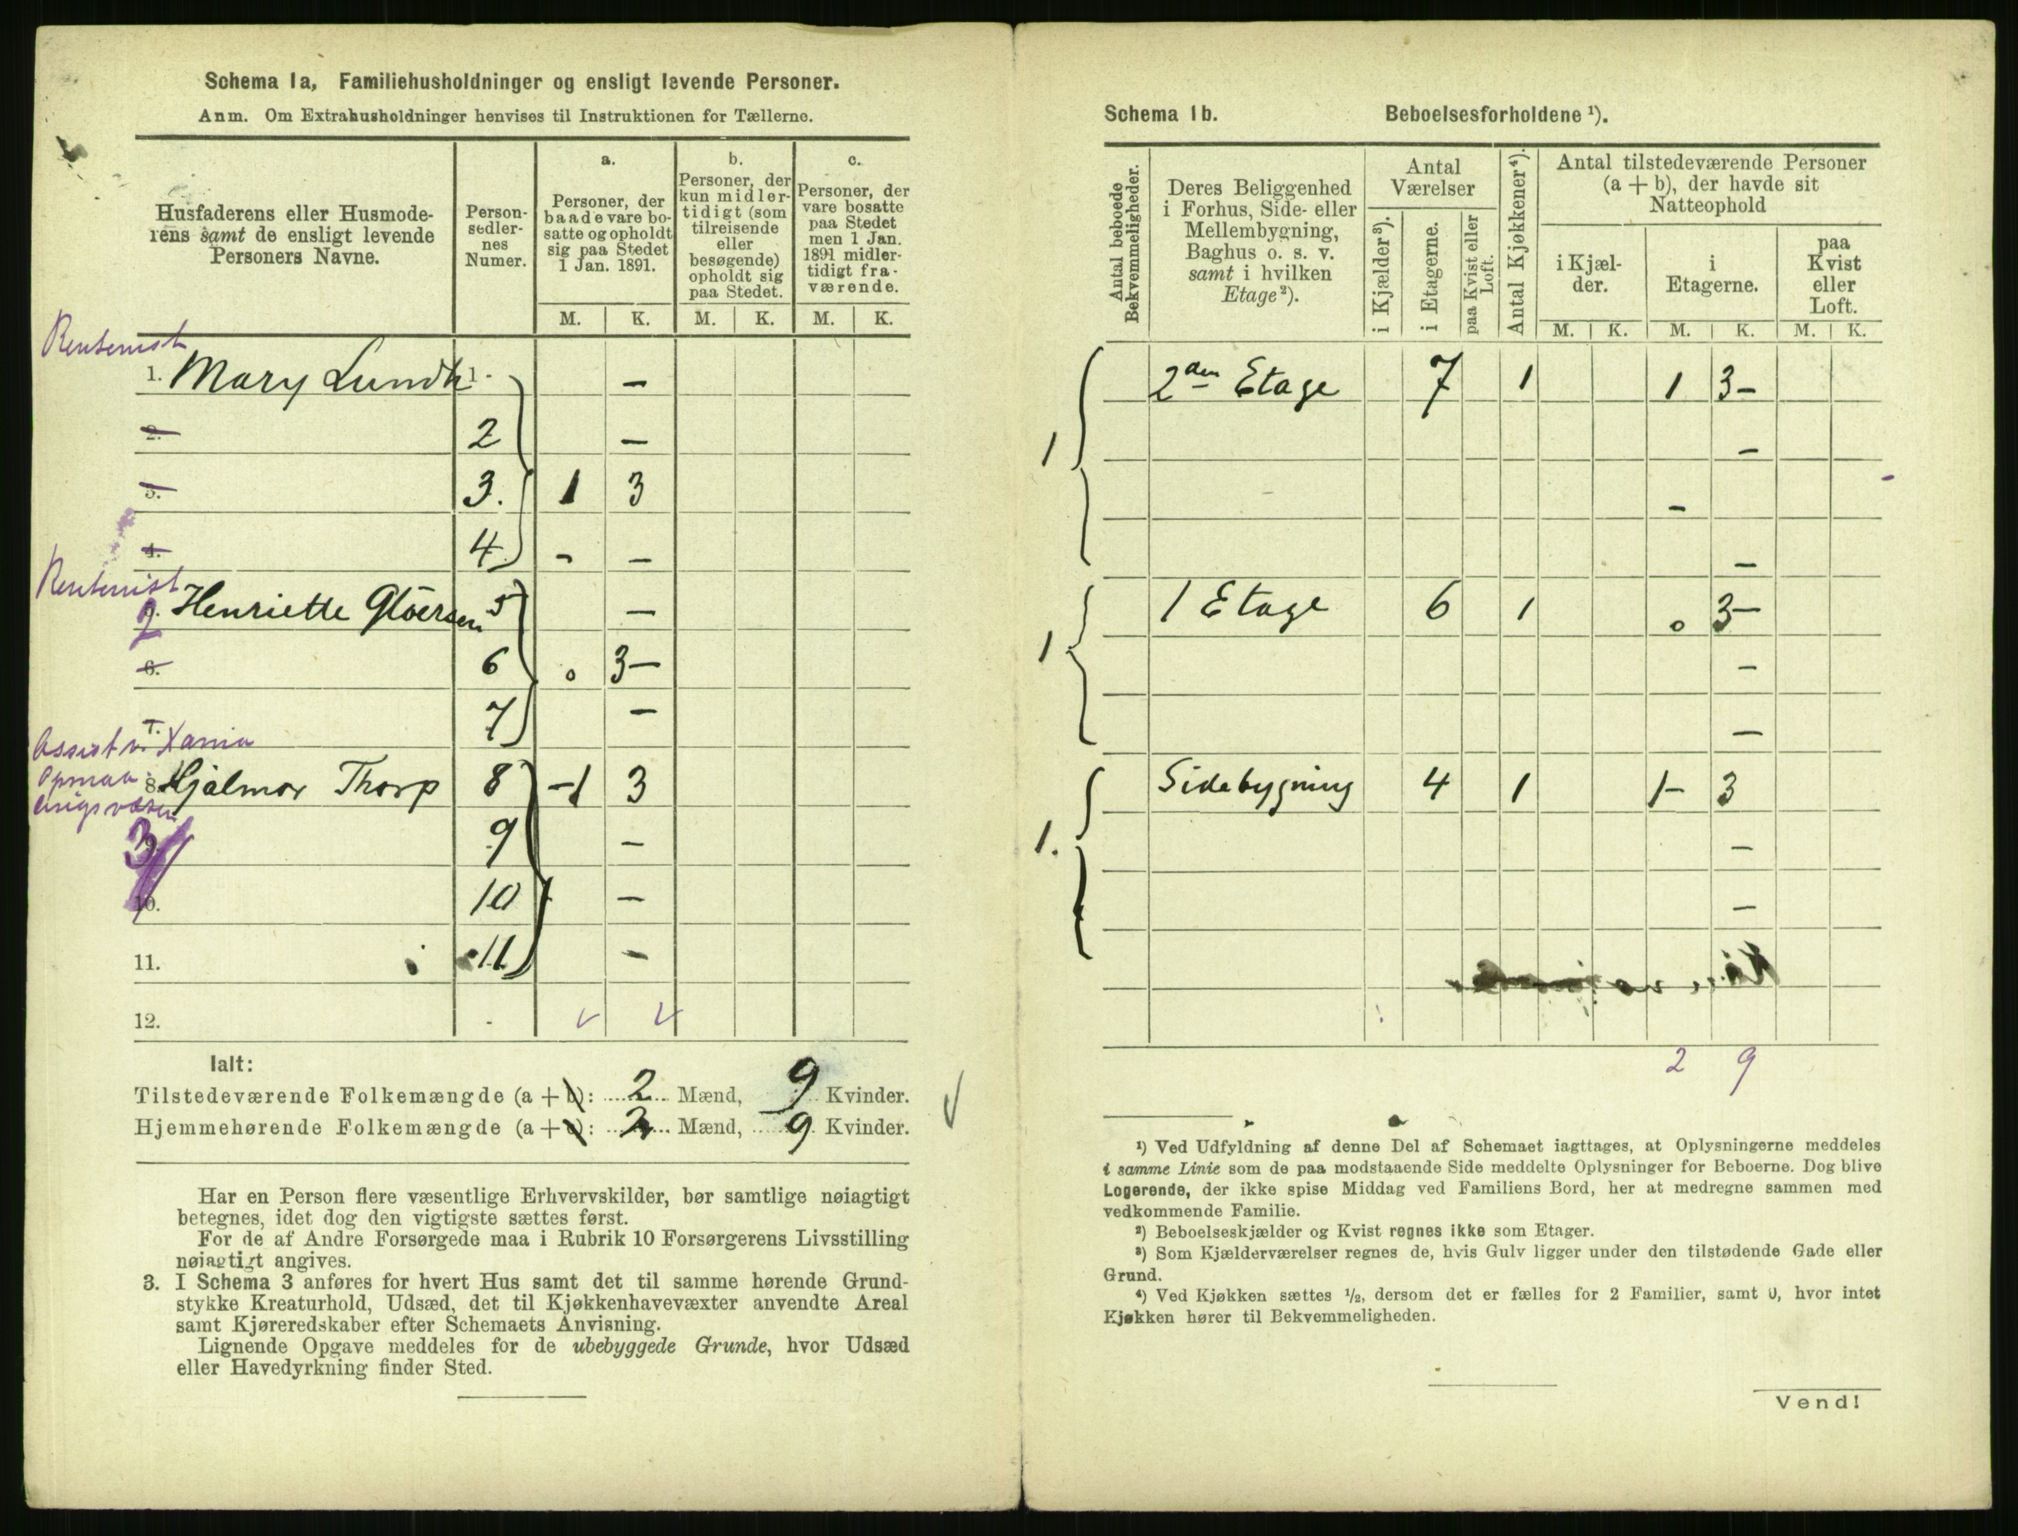 Schema 1a, Familiehusholdninger og ensligt levende Personer.
Anm. Om Extrahusholdninger henvises til Instruktionen for Tællerne.
Husfaderens eller Husmode-
rens samt de ensligt levende
Personers Navne.
Person-
sedler-
nes
Numer.
a.
Personer, der
baade vare bo-
satte og opholdt
sig paa Stedet
1 Jan. 1891.
b.
Personer, der
kun midler-
tidigt (som
tilreisende
eller
besøgende)
opholdt sig
paa Stedet.
c.
Personer, der
vare bosatte
paa Stedet
men 1 Jan.
1891 midler-
tidigt fra-
værende.
M. K. M. K. M. K.
Rentenist
1. Mary Lundh 1. —
2. 2 —
3. 3. 1 3
4. 4 - —
Rentenist
2. Henriette Gløersen 5 —
6. 6 0 3—
7. 7 —
Assist v. Xania
Opmaa
lingsvæsen
8. Hjalmar Thorp 8 —1 3
3
9. 9 —
10. 10 —
11. 11 —
12.
Ialt:
Tilstedeværende Folkemængde (a + b): 2 Mænd, 9 Kvinder.
Hjemmehørende Folkemængde (a + c): 2 Mænd, 9 Kvinder.
Har en Person flere væsentlige Erhvervskilder, bør samtlige nøiagtigt
betegnes, idet dog den vigtigste sættes først.
For de af Andre Forsørgede maa i Rubrik 10 Forsørgerens Livsstilling
nøiagtigt angives.
3. I Schema 3 anføres for hvert Hus samt det til samme hørende Grund-
stykke Kreaturhold, Udsæd, det til Kjøkkenhavevæxter anvendte Areal
samt Kjøreredskaber efter Schemaets Anvisning.
Lignende Opgave meddeles for de ubebyggede Grunde, hvor Udsæd
eller Havedyrkning finder Sted.
Schema 1b. Beboelsesforholdene ¹).
Antal beboede
Bekvemmeligheder.
Deres Beliggenhed
i Forhus, Side- eller
Mellembygning,
Baghus o. s. v.
samt i hvilken
Etage²).
Antal
Værelser
i Kjælder³).
i Etagerne.
paa Kvist eller
Loft.
Antal Kjøkkener⁴).
Antal tilstedeværende Personer
(a + b), der havde sit
Natteophold
i Kjæl-
der.
i
Etagerne.
paa
Kvist
eller
Loft.
M. K. M. K. M. K.
1 2den Etage 7 1 1 3—
—
-
—
1 1 Etage 6 1 0 3—
—
—
1. Sidebygning 4 1 1- 3
—
—
2 9
¹) Ved Udfyldning af denne Del af Schemaet iagttages, at Oplysningerne meddeles
i samme Linie som de paa modstaaende Side meddelte Oplysninger for Beboerne. Dog blive
Logerende, der ikke spise Middag ved Familiens Bord, her at medregne sammen med
vedkommende Familie.
²) Beboelseskjælder og Kvist regnes ikke som Etager.
³) Som Kjælderværelser regnes de, hvis Gulv ligger under den tilstødende Gade eller
Grund.
⁴) Ved Kjøkken sættes ½, dersom det er fælles for 2 Familier, samt 0, hvor intet
Kjøkken hører til Bekvemmeligheden.
Vend!